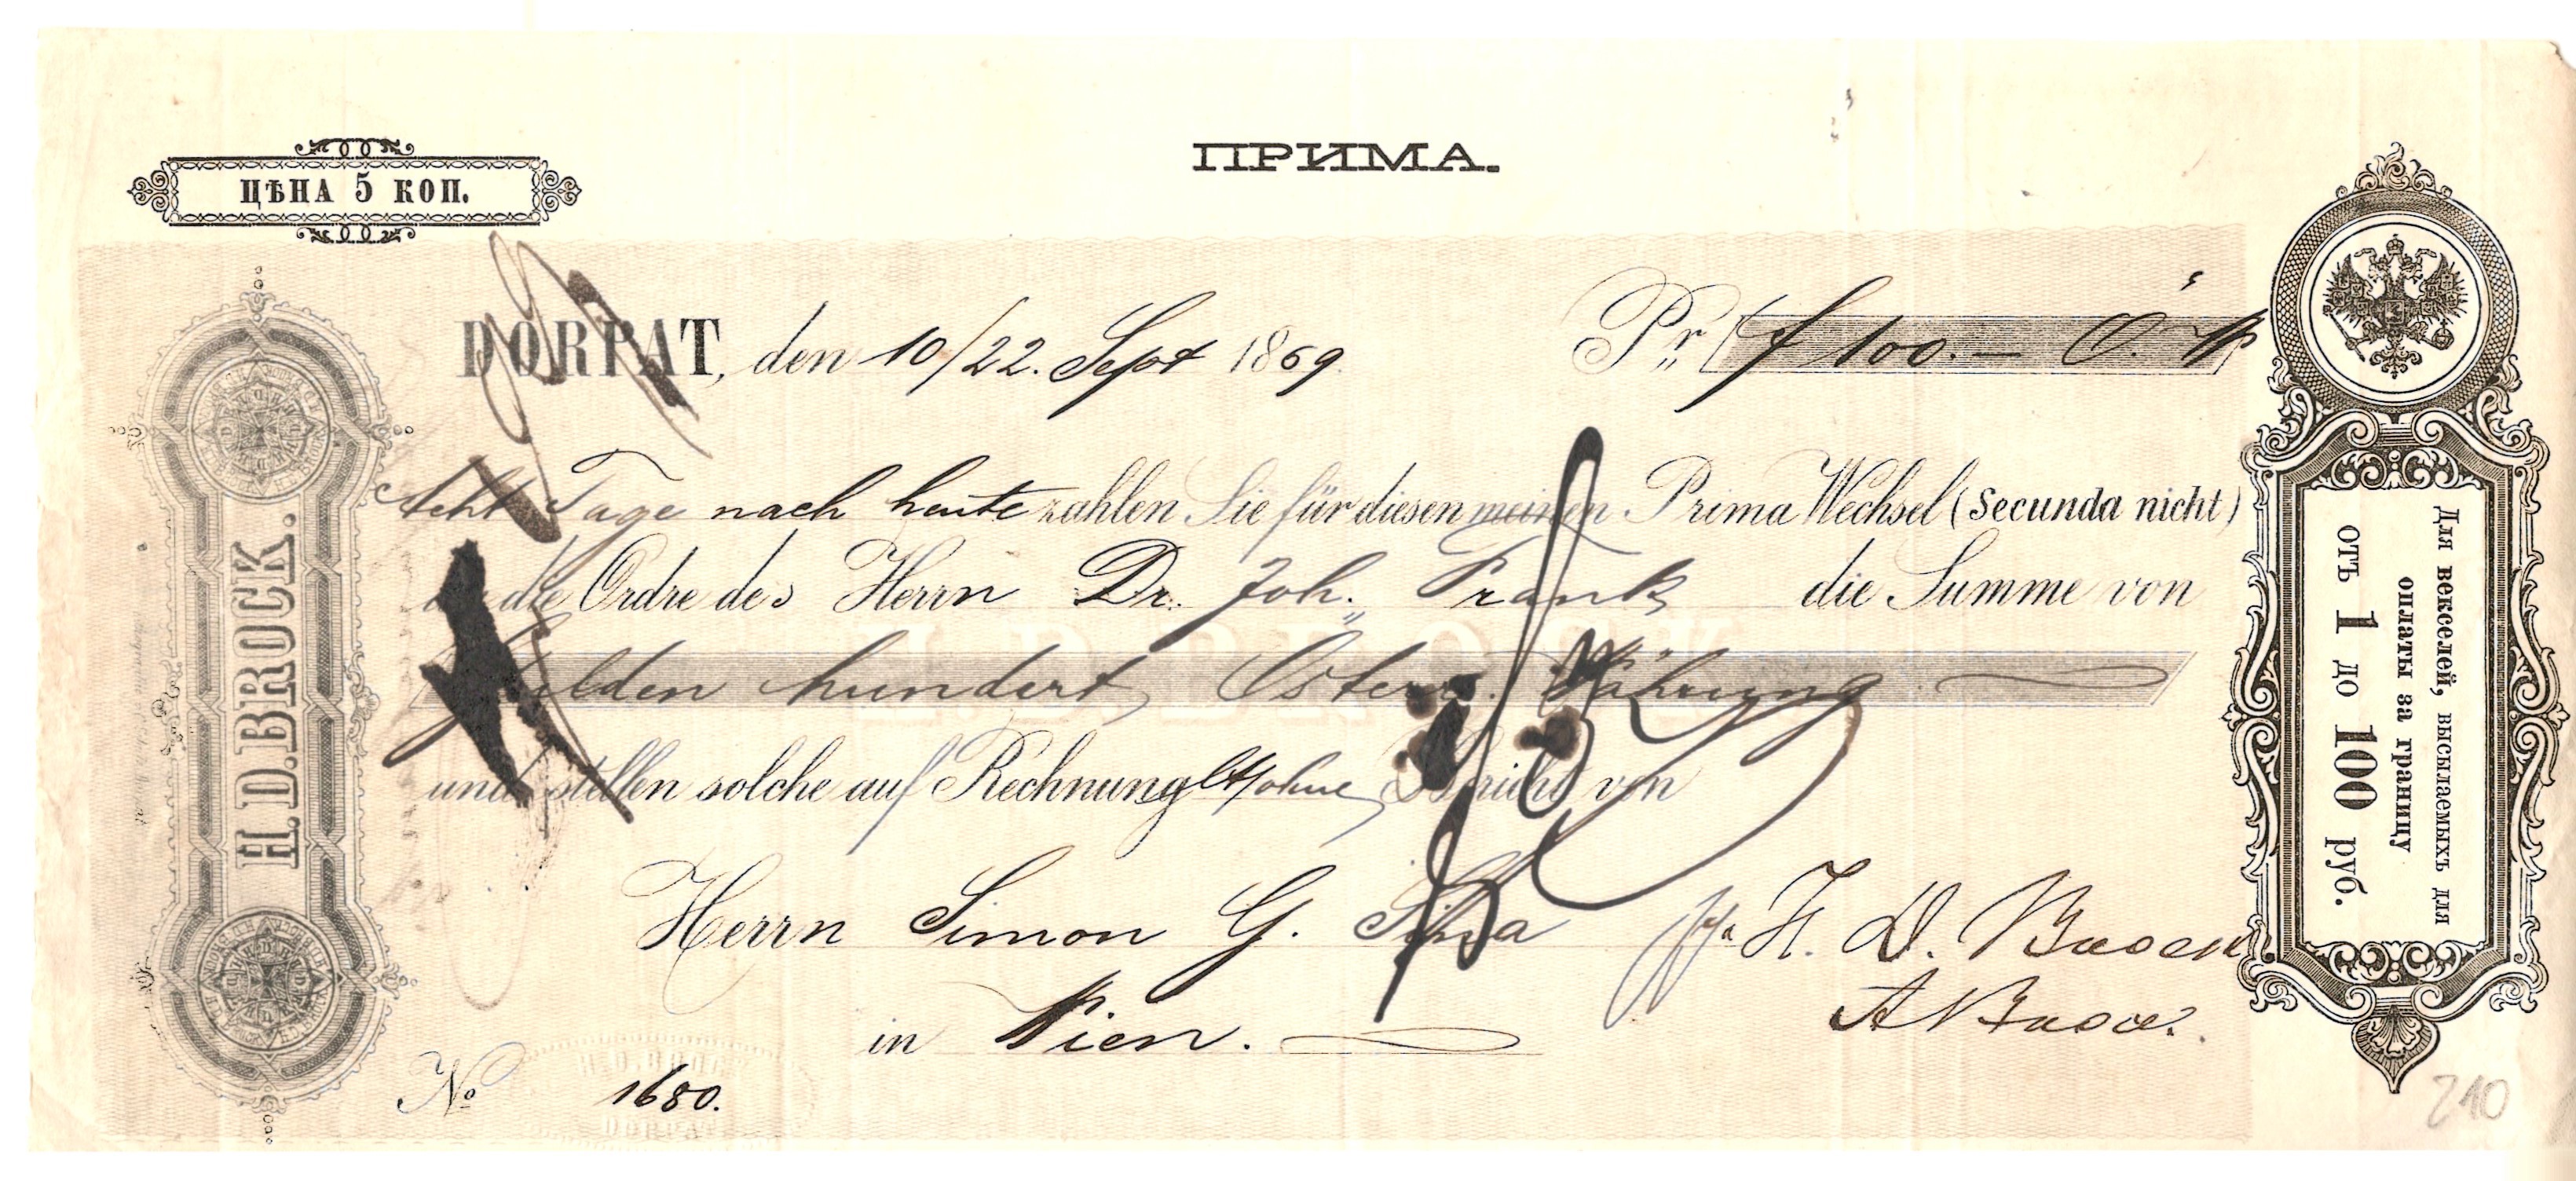 ПРИМА.
ЦѢНА 5 КОП.
DORPAT, den 10/22. Sept 1869.
Pr. f 100.— Ö. W
Acht Tage nach heute zahlen Sie für diesen meinen Prima Wechsel (Secunda nicht)
an die Ordre des Herrn Dr. Joh. Frank die Summe von
Gulden hundert Österr. Währung
und stellen solche auf Rechnung lt/ohne Bericht von
Herrn Simon G. Sina
in Wien.
pp. H. D. Brock
A Brock.
No 1680.
H. D. BROCK.
H.D. BROCK
DORPAT
Для векселей, высылаемыхъ для
оплаты за границу
отъ 1 до 100 руб.
210